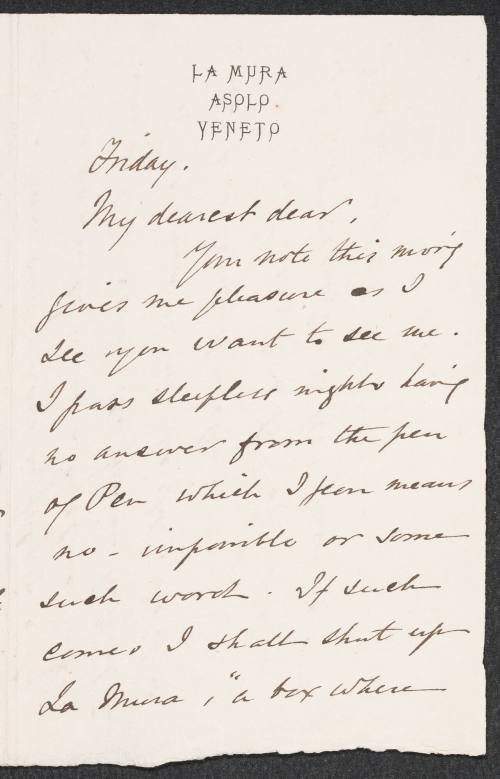 LA MURA
ASOLO
VENETO
Friday.
My dearest dear,
Your note this mor'g
gives me pleasure as I
see you want to see me.
I pass sleepless nights having
no answer from the pen
of Pen which I fear means
no - impossible or some
such word. If such
comes I shall shut up
La Mura, "a box where